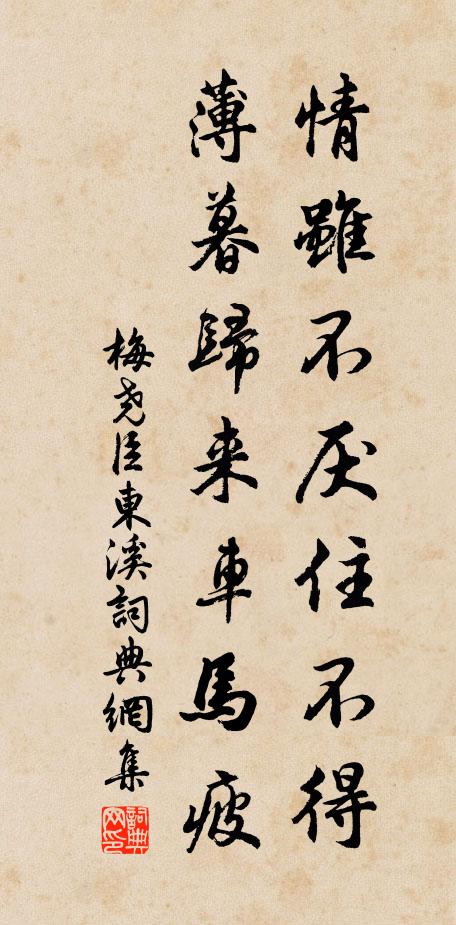 情雖不厌住不得
薄暮歸来車馬疲
梅尧臣東溪詞典網集
詞典网印